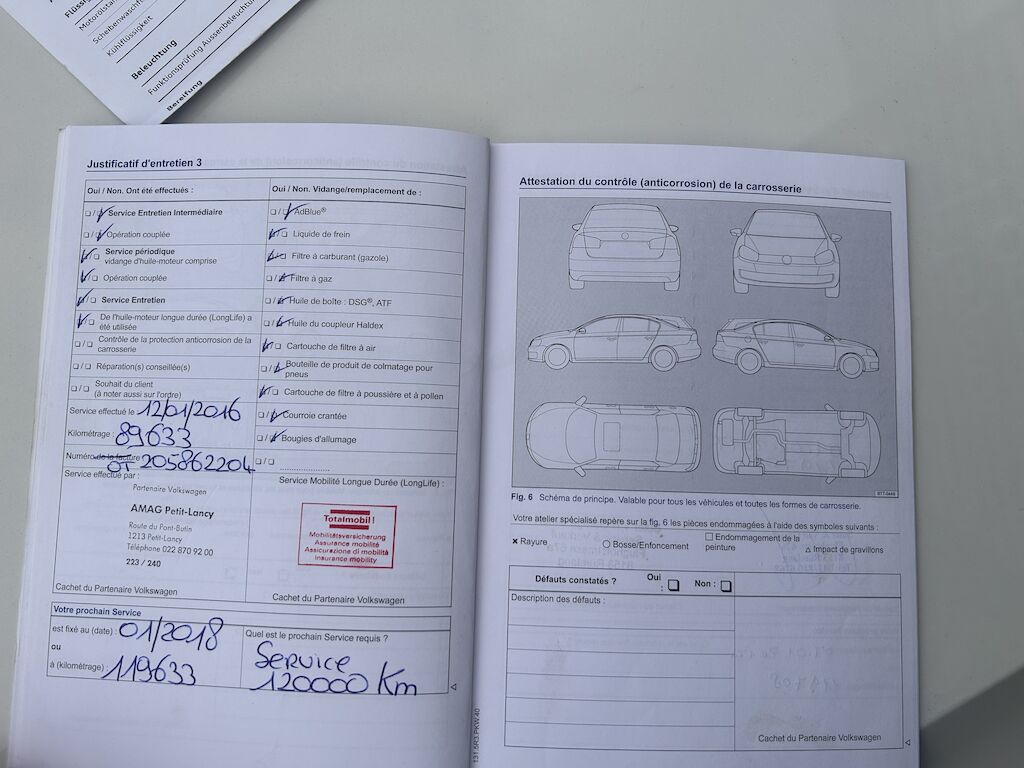 Flüssig
Motorölstan
Scheibenwaschf
Kühlflüssigkeit
Beleuchtung
Funktionsprüfung Aussenbeleuchtun
Bereifung
Justificatif d'entretien 3
Oui / Non. Ont été effectués :
Service Entretien Intermédiaire
Opération couplée
Service périodique
vidange d'huile-moteur comprise
Opération couplée
Service Entretien
De l'huile-moteur longue durée (LongLife) a
été utilisée
Contrôle de la protection anticorrosion de la
carrosserie
Réparation(s) conseillée(s)
Souhait du client
(à noter aussi sur l'ordre)
Service effectué le 12/01/2016
Kilométrage : 89633
Numéro de la facture
OT 205862204
Oui / Non. Vidange/remplacement de :
AdBlue®
Liquide de frein
Filtre à carburant (gazole)
Filtre à gaz
Huile de boîte : DSG®, ATF
Huile du coupleur Haldex
Cartouche de filtre à air
Bouteille de produit de colmatage pour
pneus
Cartouche de filtre à poussière et à pollen
Courroie crantée
Bougies d'allumage
Service effectué par :
Partenaire Volkswagen
AMAG Petit-Lancy
Route du Pont-Butin
1213 Petit-Lancy
Téléphone 022 870 92 00
223 / 240
Cachet du Partenaire Volkswagen
Service Mobilité Longue Durée (LongLife) :
Totalmobil!
Mobilitätsversicherung
Assurance mobilité
Assicurazione di mobilità
Insurance mobility
Cachet du Partenaire Volkswagen
Votre prochain Service
est fixé au (date) : 01/2018
ou
à (kilométrage) : 119633
Quel est le prochain Service requis ?
SERVICE
120000 Km
131.5R3.PKW.40
Attestation du contrôle (anticorrosion) de la carrosserie
B1T-0449
Fig. 6 Schéma de principe. Valable pour tous les véhicules et toutes les formes de carrosserie.
Votre atelier spécialisé repère sur la fig. 6 les pièces endommagées à l'aide des symboles suivants :
Rayure
Bosse/Enfoncement
Endommagement de la
peinture
Impact de gravillons
Défauts constatés ? Oui : Non :
Description des défauts :
Cachet du Partenaire Volkswagen